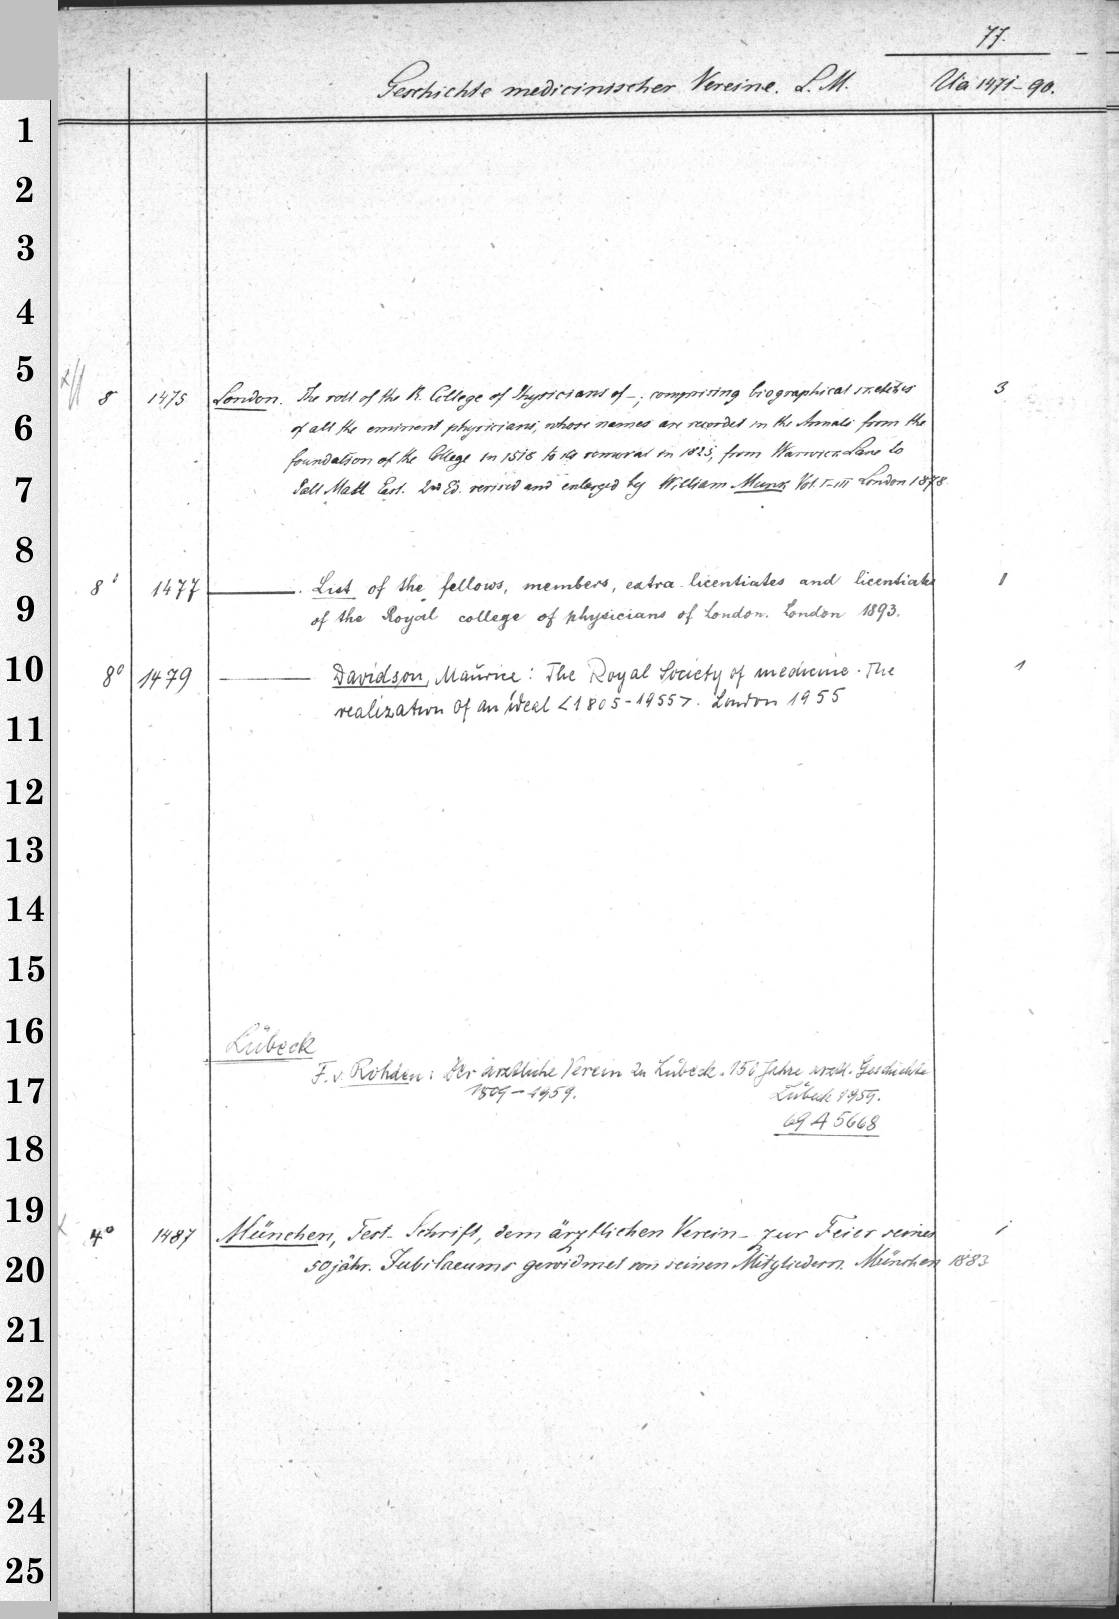 77.
Geschichte medicinischer Vereine. L. M. Via 1471-90.
1
2
3
4
5
8 1475 London. The roll of the R. College of Physicians of -; comprising biographical sketches 3
6
of all the eminent physicians, whose names are recorded in the Annals from the
foundation of the College in 1518 to its removal in 1825, from Warwick Lane to
7
Pall Mall East. 2nd Ed. revised and enlarged by William Munk Vol. I-III London 1878
8
8° 1477 ———. List of the fellows, members, extra-licentiates and licentiates 1
9
of the Royal college of physicians of London. London 1893.
10
8° 1479 ——— Davidson, Maurice: The Royal Society of medicine. The 1
realization of an ideal <1805-1955>. London 1955
11
12
13
14
15
16
Lübeck
F. v. Rohden: Der ärztliche Verein zu Lübeck. 150 Jahre ärztl. Geschichte
17
1809-1959. Lübeck 1959.
69 A 5668
18
19
4° 1487 München, Fest-Schrift, dem ärztlichen Verein - zur Feier seines 1
20
50jähr. Jubilaeums gewidmet von seinen Mitgliedern. München 1883
21
22
23
24
25